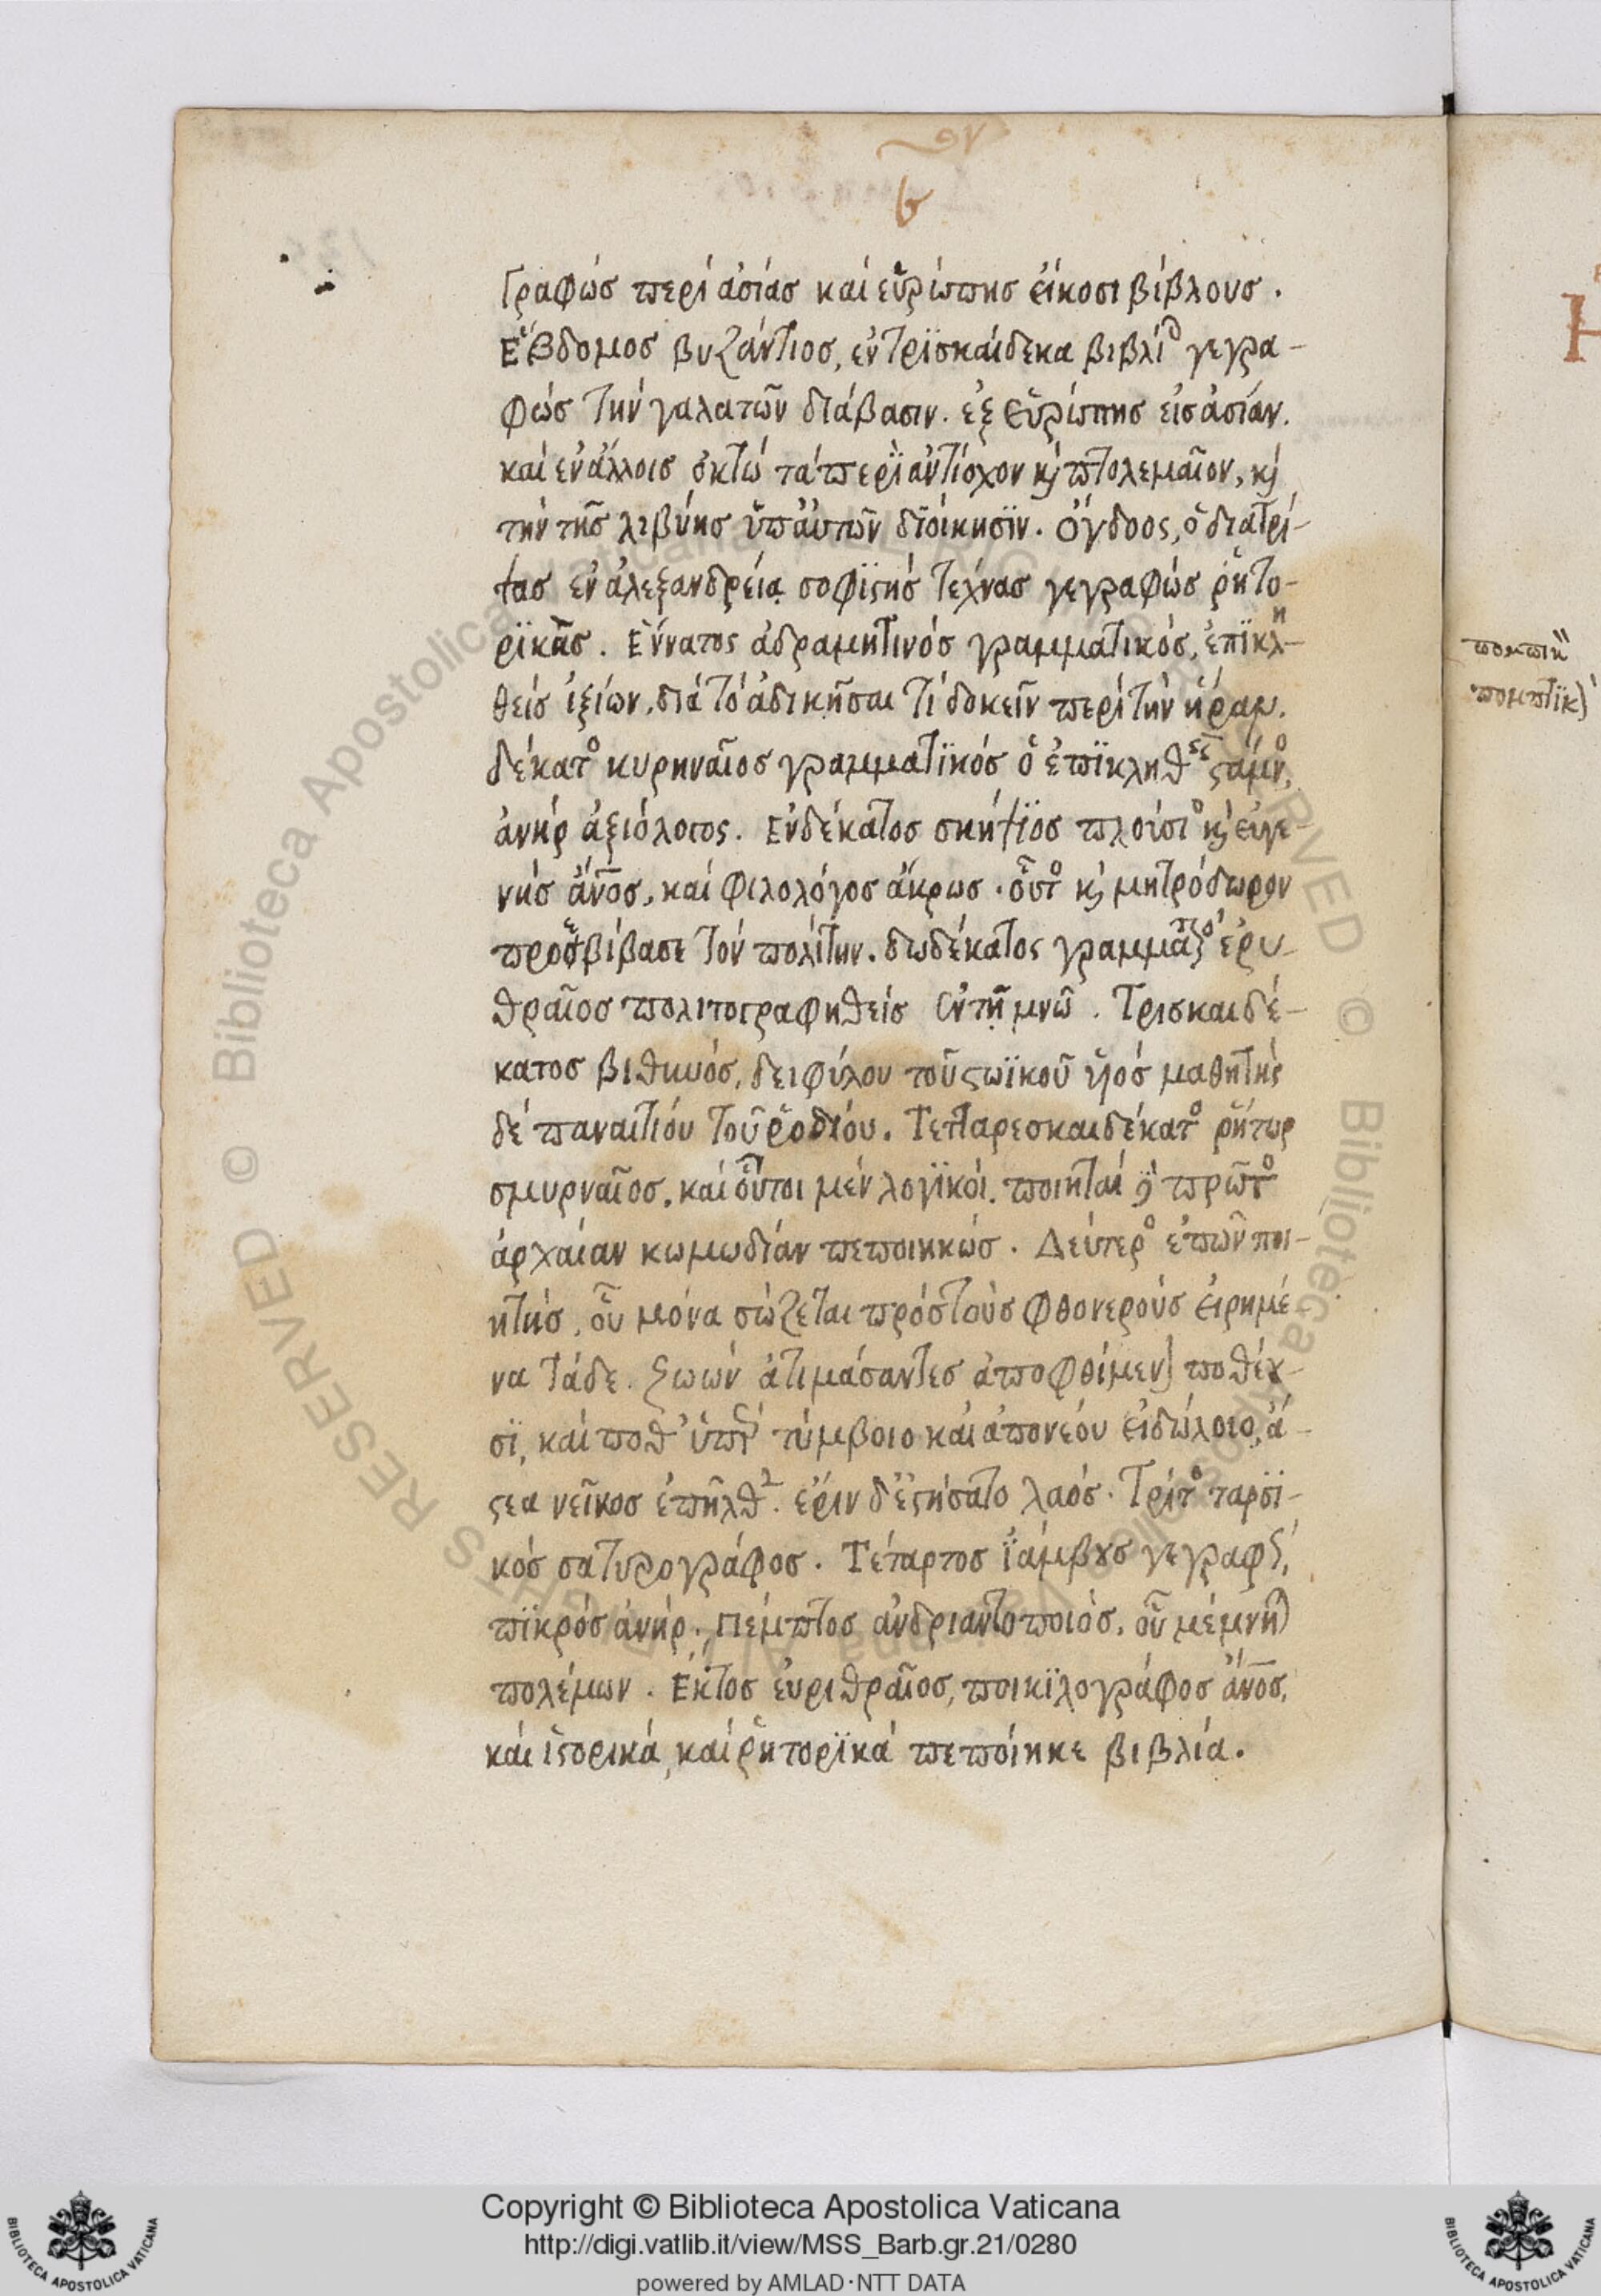 γραφώς περί ἀσίας καί εὐρώπης εἴκοσι βίβλους.
Ἕβδομος βυζάντιος, ἐν τρϊσκαίδεκα βιβλί γεγρα-
φώς τήν γαλατῶν διάβασιν. ἐξ εὐρώπης εἰς ἀσίαν.
καί ἐν ἄλλοις ὀκτώ τά περϊ ἀντίοχον κ πτολεμαῖον, κ
τήν τῆς λιβύης ὑπ ἀυτῶν διοίκησϊν. ὄγδοος, ὁ διατρί-
ψας ἐν ἀλεξανδρεία σοφϊστής τέχνας γεγραφώς ῥητο-
ρϊκάς. Ἔννατος ἀδραμητινός γραμματικός, ἐπϊκλη-
θείς ἰξίων, διά τό ἀδικῆσαι τί δοκεῖν περί τήν ἥραν.
δέκατο κυρηναῖος γραμματϊκός ὁ ἐπϊκληθ στάμνο,
ἀνήρ ἀξιόλογος. Ἑνδέκατος σκήψϊος πλούσιο κ εὐγε-
νής ἄνος, καί φιλολόγος ἄκρως. οὗτο κ μητρόδωρον
προεβίβασε τόν πολίτην. δωδέκατος γραμμα ἐρυ-
θραῖος πολιτογραφηθείς ἐν τῇ μνῶ. Τρισκαιδέ-
κατος βιθυνός, δειφύλου τοῦ στωϊκοῦ ὑός μαθητής
δέ παναιτιόυ τοῦ ῥοδιόυ. Τετταρεσκαιδέκατο ῥήτωρ
σμυρναῖος, καί οὗτοι μέν λογϊκόι. ποιηταί πρῶτο
ἀρχαίαν κωμωδίαν πεποιηκώς. Δεύτερο ἐπῶν ποι-
ητής, οὗ μόνα σώζεται πρός τούς φθονερούς εἰρημέ
να τάδε. ζωών ἀτιμάσαντες ἀποφθίμεν ποθέχ-
σϊ, καί ποθ ὑπ τύμβοιο καί ἀπονέου εἰδώλοιο, ἄ-
στεα νεῖκος ἐπῆλθ. ἔριν δ ἐστήσατο λαός. Τρίτο ταρσϊ-
κός σατυρογράφος. Τέταρτος ϊάμβους γεγραφ,
πϊκρός ἀνήρ. Πέμπτος ἀνδριαντοποιός, οὗ μέμνη
πολέμων. Ἕκτος ἐυριθραῖος, ποικϊλογράφος ἄνος,
κάι ἱστορικά, καί ῥητορϊκά πεποίηκε βιβλία.
Copyright © Biblioteca Apostolica Vaticana
http://digi.vatlib.it/view/MSS_Barb.gr.21/0280
powered by AMLAD·NTT DATA